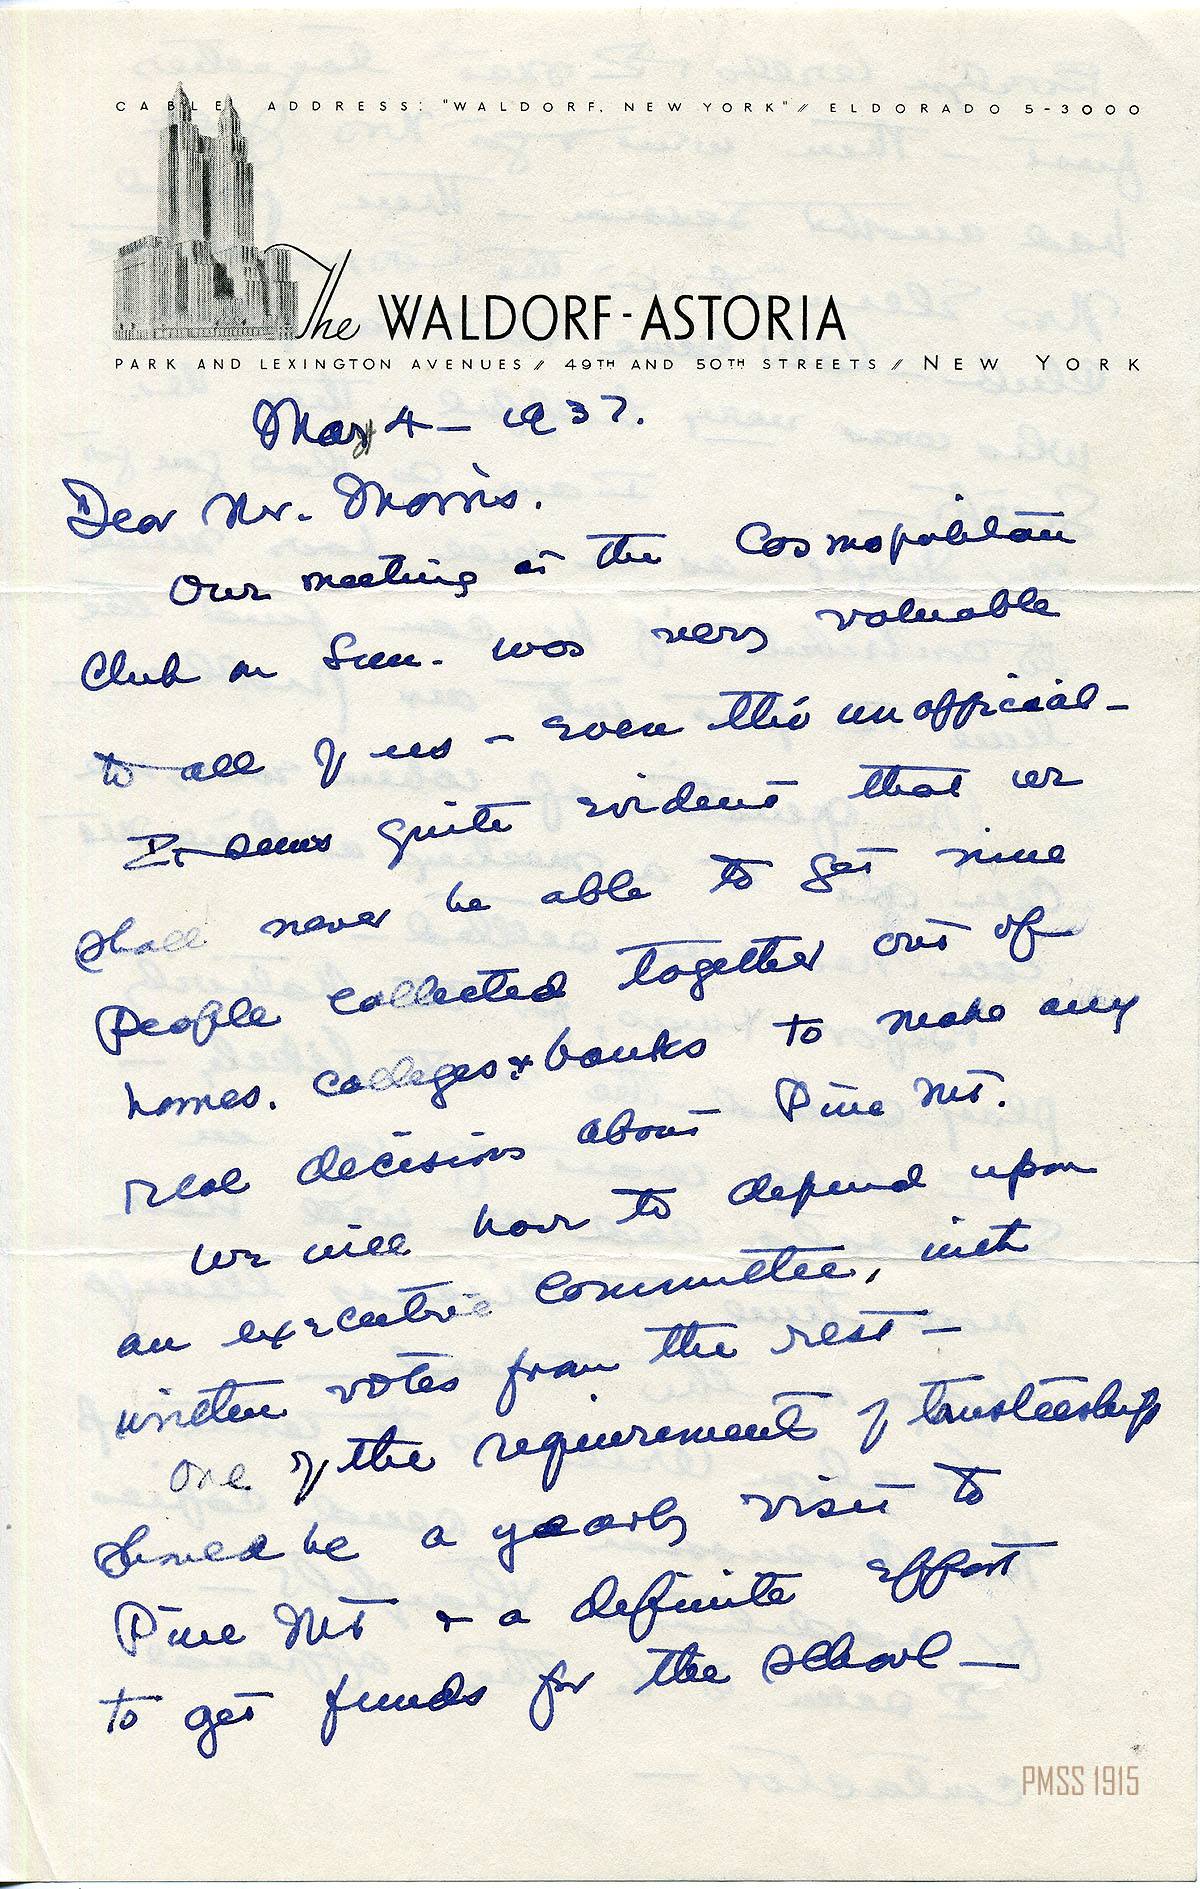 CABLE ADDRESS: "WALDORF, NEW YORK" // ELDORADO 5-3000
The WALDORF-ASTORIA
PARK AND LEXINGTON AVENUES // 49TH AND 50TH STREETS // NEW YORK
May 4 - 1937.
Dear Mr. Morris.
Our meeting at the Cosmopolitan
Club on Sun. was very valuable
to all of us - even tho' unofficial -
It seems quite evident that we
shall never be able to get nine
people collected together out of
homes, colleges & banks to make any
real decisions about Pine Mt.
We will have to depend upon
an executive committee, with
written votes from the rest -
One of the requirements of trusteeship
should be a yearly visit to
Pine Mt & a definite effort
to get funds for the school -
PMSS 1915